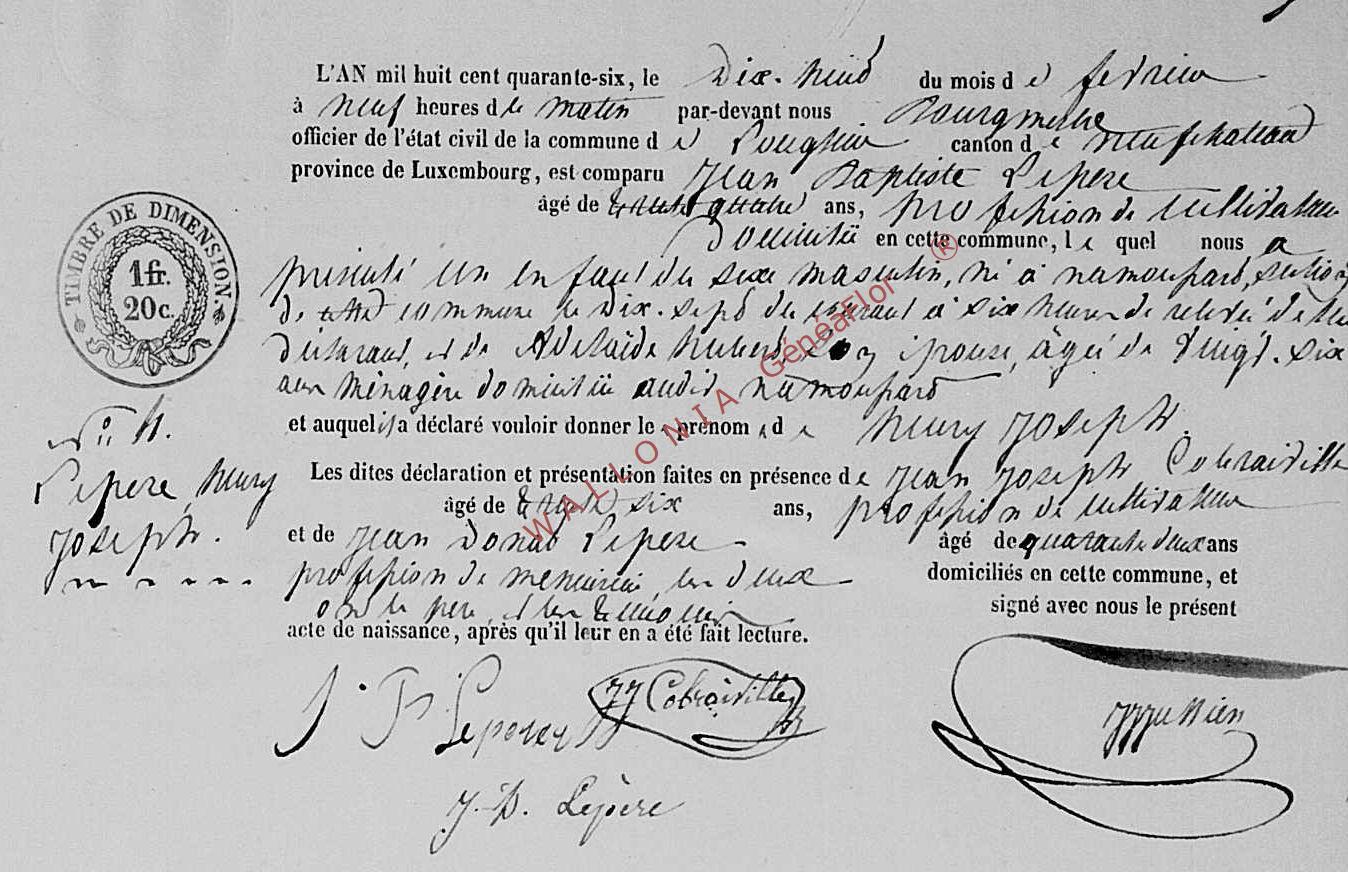 L'AN mil huit cent quarante-six, le Dix-neuf du mois de fevrier
à neuf heures du matin par-devant nous Bourgmestre
officier de l'état civil de la commune de Longlier canton de neufchateau
province de Luxembourg, est comparu Jean Baptiste Lepere
âgé de trente quatre ans, profession de cultivateur
Domicilié en cette commune, le quel nous a
présenté un enfant du sexe masculin, né à namoupard, section
de cette commune le Dix-sept du courant à six heures de relevée de lui
déclarant, et de Adelaïde hubert, Son épouse, âgée de Vingt-six
ans ménagère domiciliée audit namoupard
et auquel il a déclaré vouloir donner les prénoms de henry Joseph.
Les dites déclaration et présentation faites en présence de Jean Joseph Cobraiville
âgé de six ans, profession de cultivateur
et de Jean Donat Lepere âgé de quarante deux ans
profession de menuisier, les deux domiciliés en cette commune, et
ont le père, et les témoins signé avec nous le présent
acte de naissance, après qu'il leur en a été fait lecture.
TIMBRE DE DIMENSION.
1 fr.
20 c.
No 4.
Lepere, henry
Joseph.
J. B Leperer
JJ Cobraiville
J. D. Lepère
WALLONIA GénéaFlor ®